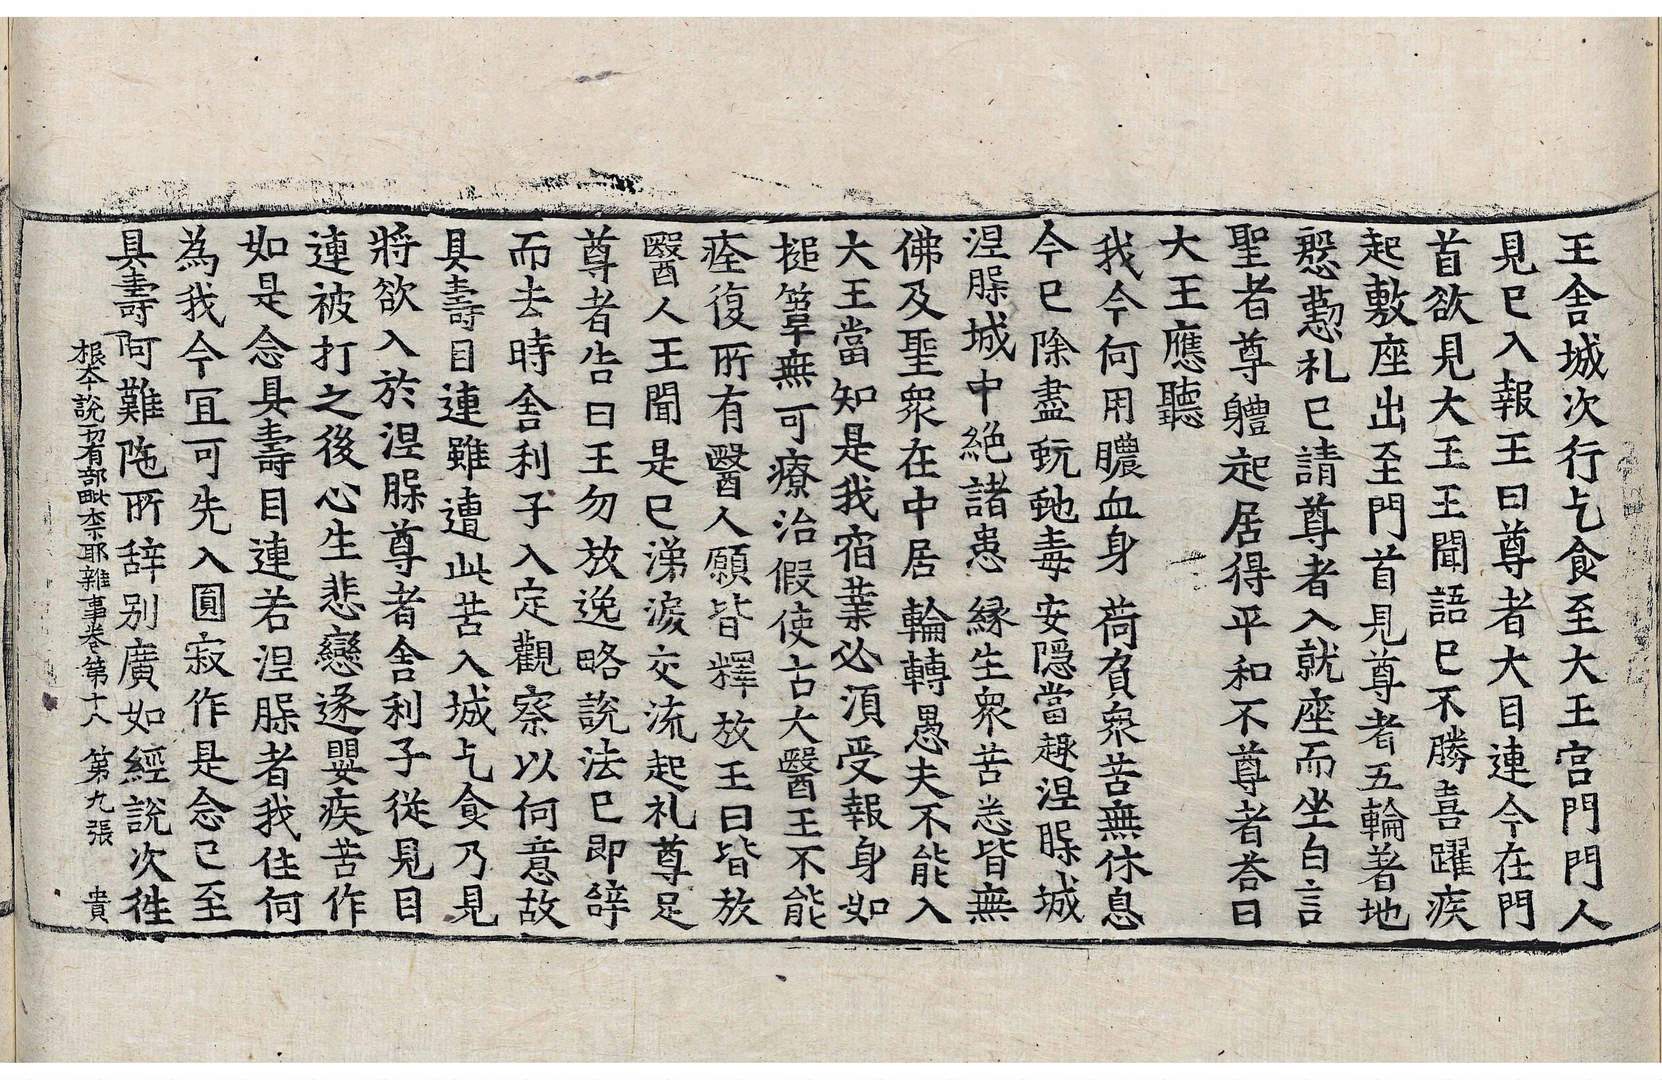 王舍城次行乞食至大王宮門門人
見已入報王曰尊者大目連今在門
首欲見大王王聞語已不勝喜躍疾
起敷座出至門首見尊者五輪著地
慇懃礼已請尊者入就座而坐白言
聖者尊軆起居得平和不尊者荅曰
大王應聽
我今何用膿血身 荷負衆苦無休息
今已除盡蚖虵毒 安隱當趣涅槃城
涅槃城中絶諸患 縁生衆苦悉皆無
佛及聖衆在中居 輪轉愚夫不能入
大王當知是我宿業必湏受報身如
搥篿無可療治假使古大醫王不能
痊復所有醫人願皆釋放王曰皆放
醫人王聞是已涕淚交流起礼尊足
尊者告曰王勿放逸略說法已即辝
而去時舍利子入定觀察以何意故
具壽目連雖遭此苦入城乞食乃見
將欲入於涅槃尊者舍利子従見目
連被打之後心生悲戀遂嬰疾苦作
如是念具壽目連若涅槃者我住何
為我今冝可先入圓寂作是念已至
具壽阿難陁所辞別廣如經說次徃
根本說一切有部毗柰耶雜事卷第十八 第九張 貴